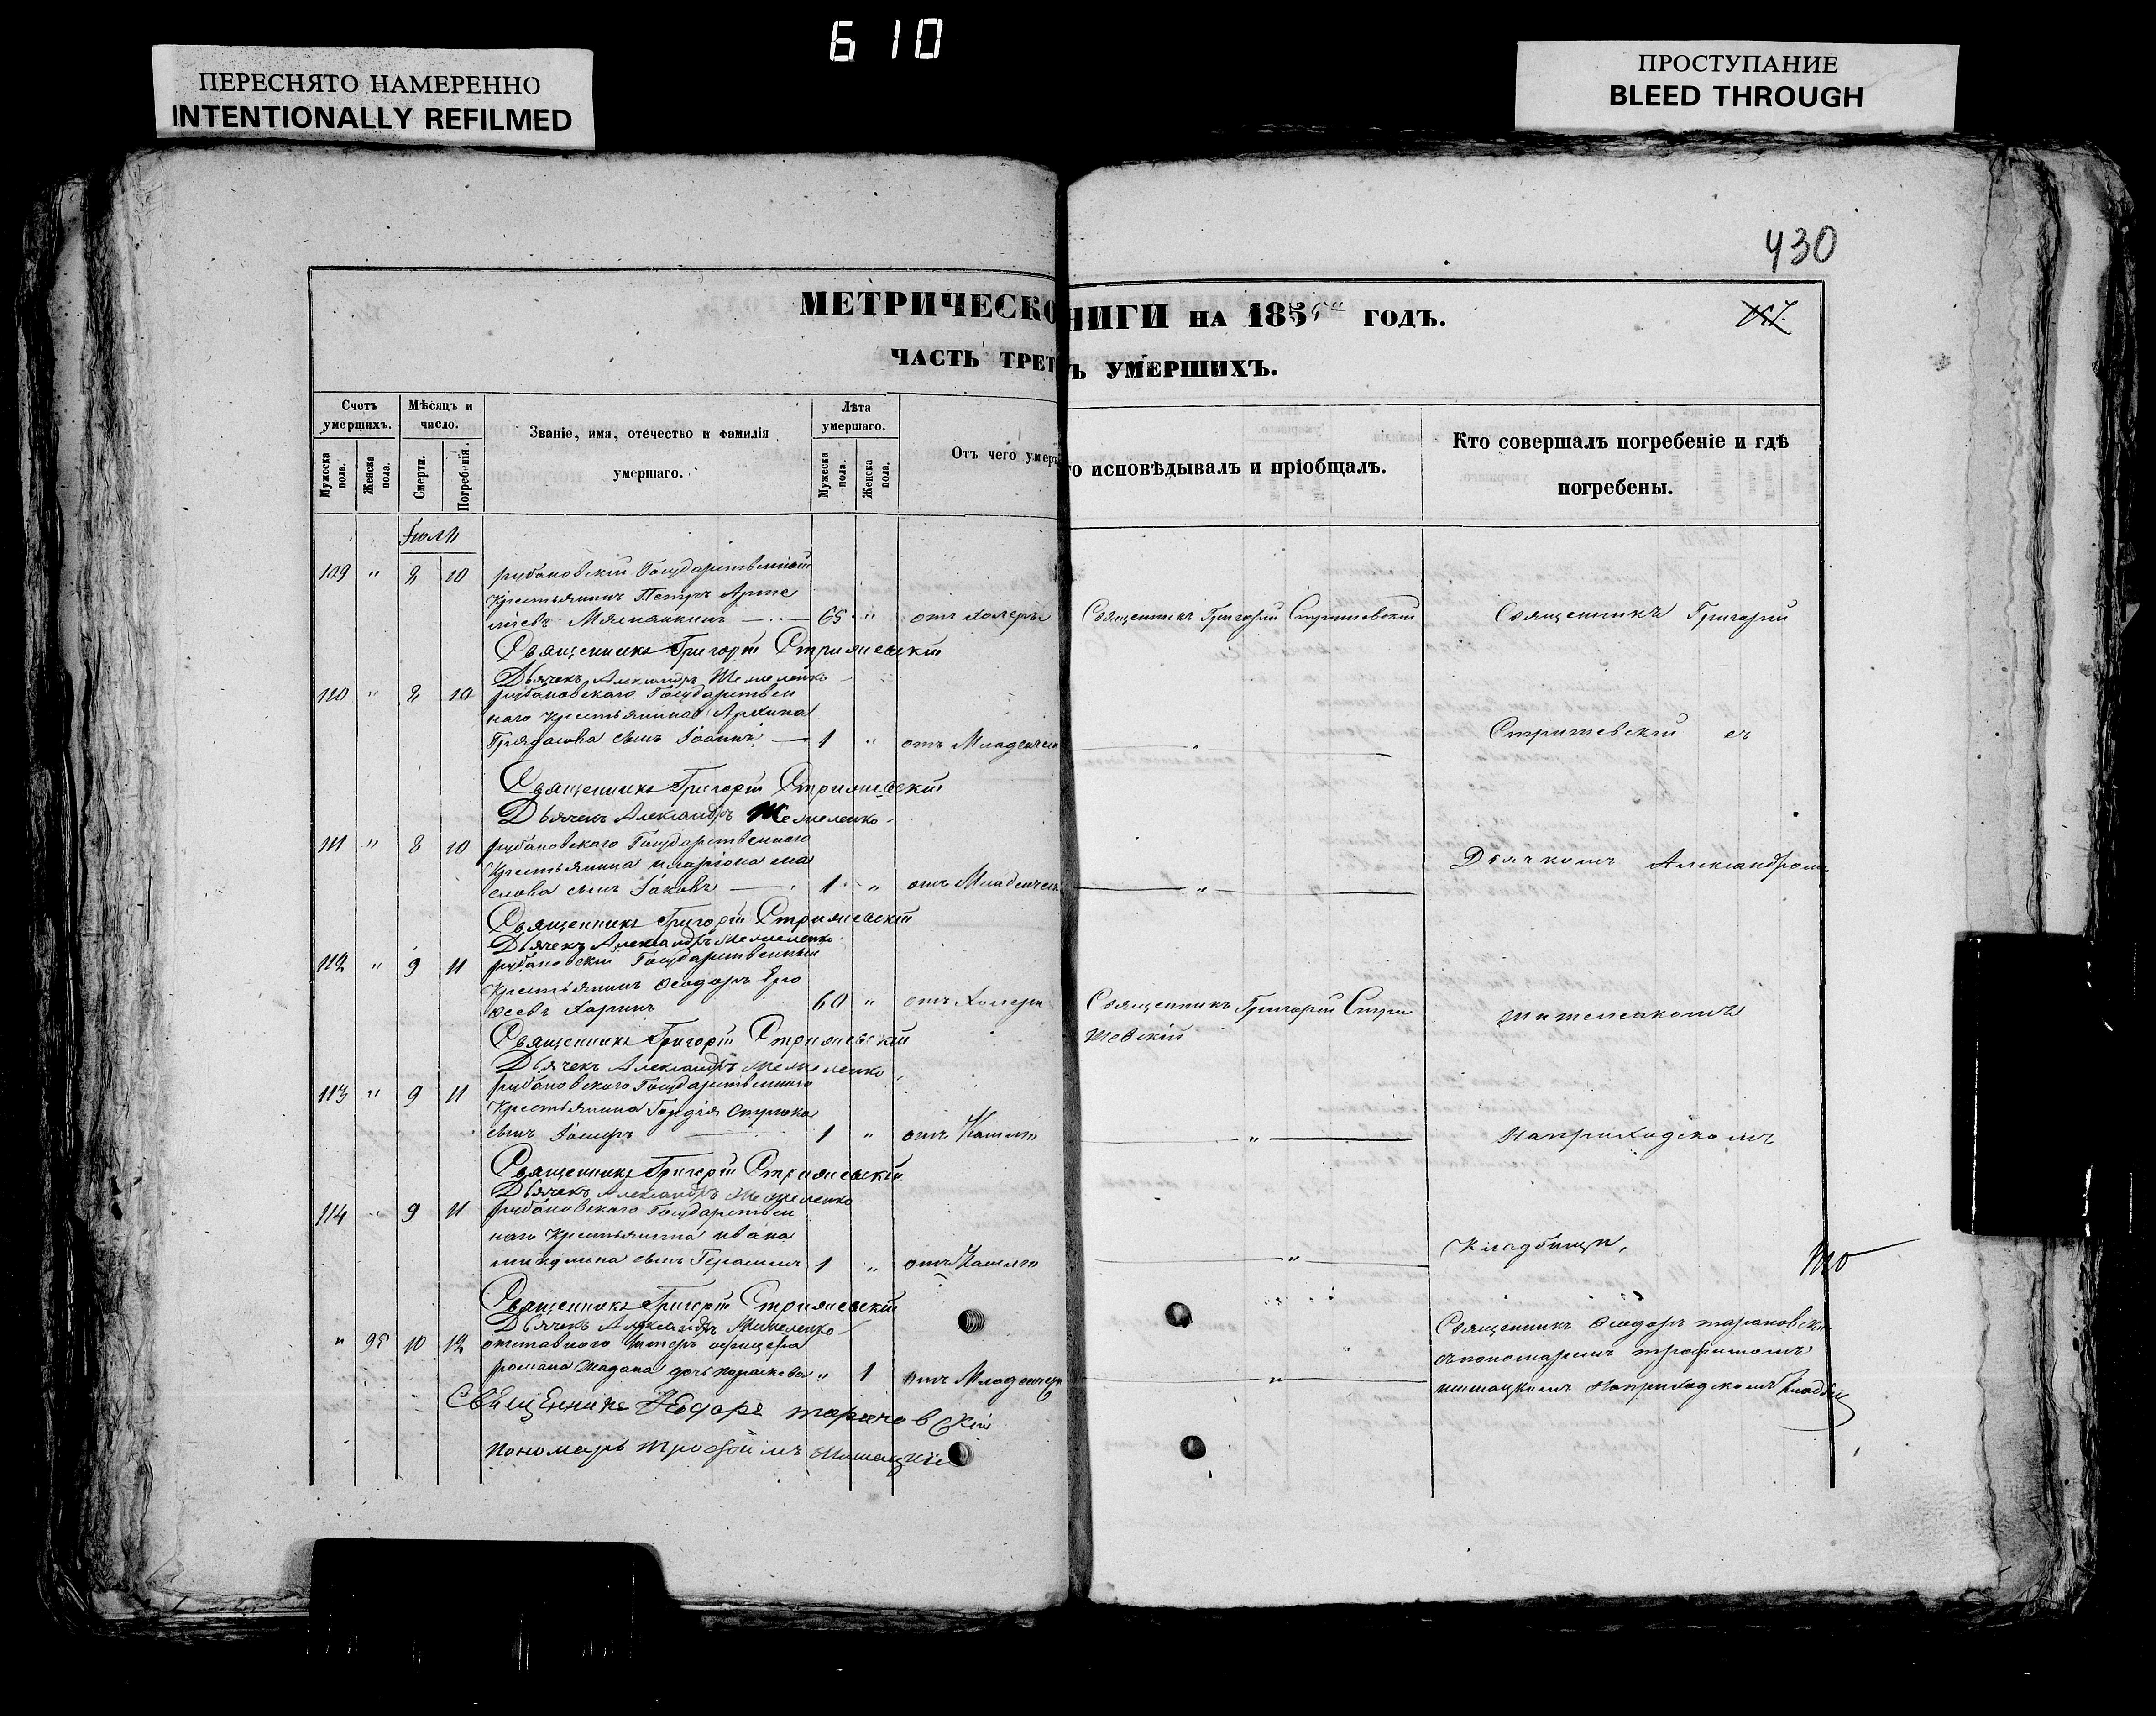 6 10
ПЕРЕСНЯТО НАМЕРЕННО
INTENTIONALLY REFILMED
ПРОСТУПАНИЕ
BLEED THROUGH
430
МЕТРИЧЕСКО
НИГИ НА 185 ГОДЪ.
ЧАСТЬ ТРЕТ
Ъ УМЕРШИХЪ.
Счетъ умершихъ.
Мужеска пола.
Женска пола.
Мѣсяцъ и число.
Смерти.
Погребенія.
Званіе, имя, отечество и фамилія
умершаго.
Лѣта умершаго.
Мужеска пола.
Женска пола.
Отъ чего умеръ
го исповѣдывалъ и пріобщалъ.
Кто совершалъ погребеніе и гдѣ
погребены.
Іюль
109 " 8 10 рубановскій Государственный
Крестьянинъ Петръ Арте
65 " отъ холеры Священникъ Григорій Стрижевскій
Священникъ Григорій
Священникъ Григорій Стрижевскій
Дьячекъ Александръ
110 " 8 10 рубановскаго Государствен
наго Крестьянина Архипа
сынъ Іоаннъ 1 " отъ Младенчес "
Стрижевскій съ
Священникъ Григорій Стрижевскій
Дьячекъ Александръ
111 " 8 10 рубановскаго Государственнаго
Крестьянина иларіона ма
слова сынъ Іаковъ 1 " отъ Младенчес "
Дьячкомъ Александромъ
Священникъ Григорій Стрижевскій
Дьячекъ Александръ
112 " 9 11 рубановскій Государственный
Крестьянинъ Ѳеодоръ Еро
ѳеевъ Харинъ 60 " отъ Холеры Священникъ Григорій Стри
жевскій
Священникъ Григорій Стрижевскій
Дьячекъ Александръ
113 " 9 11 рубановскаго Государственнаго
Крестьянина
сынъ Іосифъ 1 " отъ Кашля "
наприходскомъ
Священникъ Григорій Стрижевскій
Дьячекъ Александръ
114 " 9 11 рубановскаго Государствен
наго Крестьянина ивана
микулина сынъ Герасимъ 1 " отъ Кашля "
Кладбищѣ,
Священникъ Григорій Стрижевскій
Дьячекъ Александръ
" 95 10 12 отставного Унтеръ офицера
романа Жадана дочь параскева " 1 отъ Младенчес "
Священникъ Ѳеодоръ тарановскій
съпономаремъ трофимомъ
наприходскомъ кладбищ
Священникъ Ѳеодоръ тарановскій
пономарь трофимъ